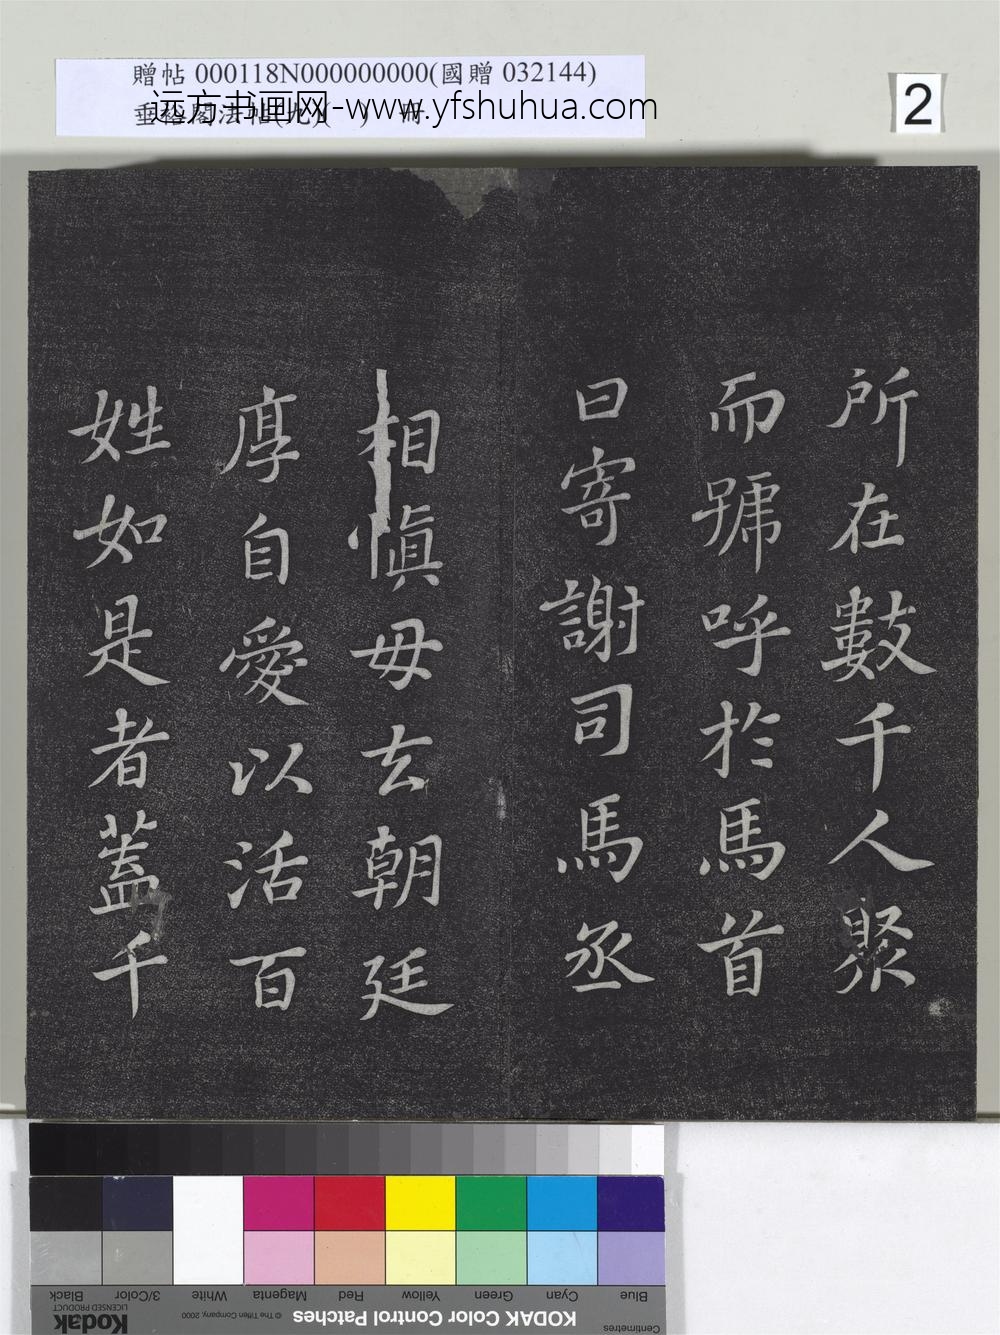 贈帖 000118N000000000(國贈 032144)
垂裕閣法帖(九)( ) 冊
远方书画网-www.yfshuhua.com
2
所在數千人聚
而號呼於馬首
曰寄謝司馬丞
相愼毋去朝廷
厚自愛以活百
姓如是者蓋千
Blue
Cyan
Green
Yellow
Red
Magenta
White
3/Color
Black
Centimetres
KODAK Color Control Patches
© The Tiffen Company, 2000
Kodak
LICENSED PRODUCT